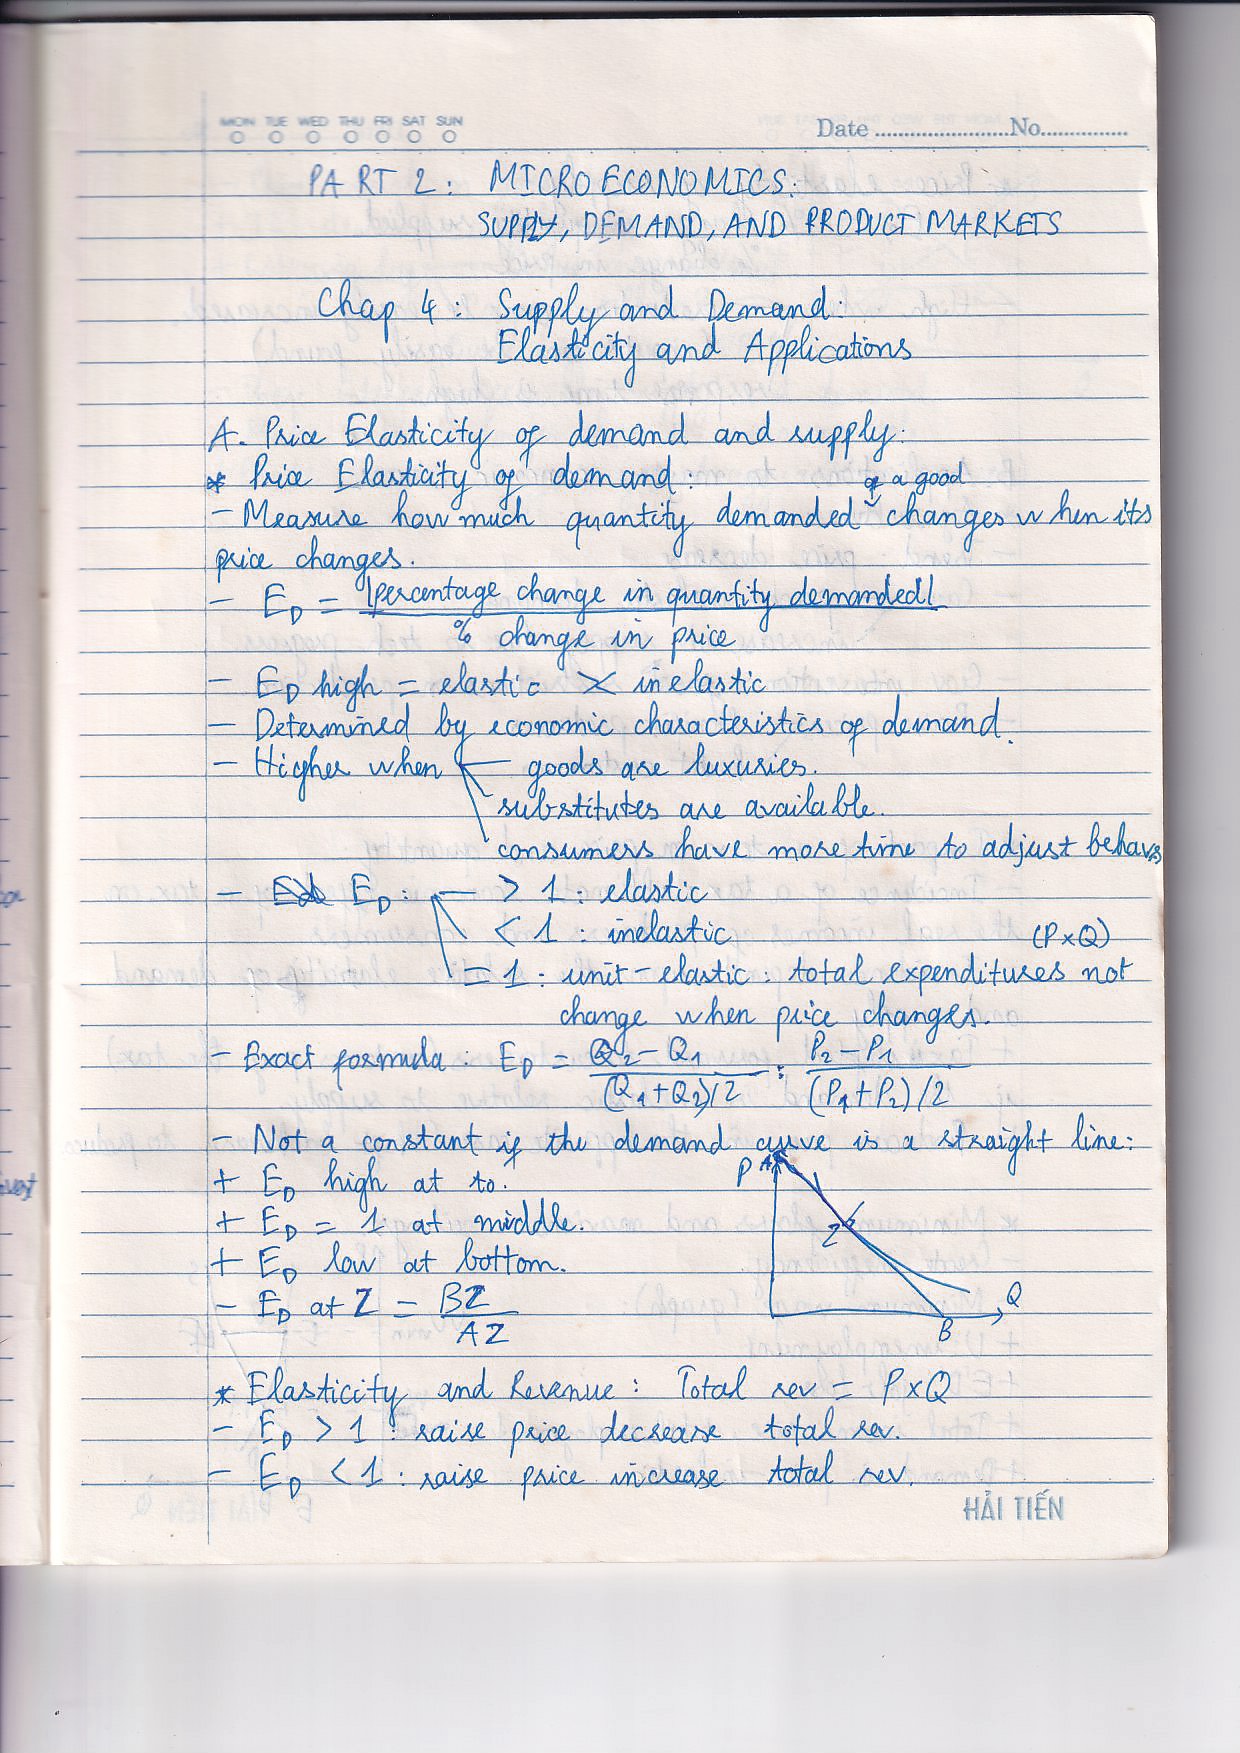 MON TUE WED THU FRI SAT SUN
Date ........................No...............
PART 2: MICROECONOMICS:
SUPPLY, DEMAND, AND PRODUCT MARKETS
Chap 4: Supply and Demand:
Elasticity and Applications
A. Price Elasticity of demand and supply:
* Price Elasticity of demand:
of a good
- Measure how much quantity demanded changes when its
price changes.
- ED = |percentage change in quantity demanded|
% change in price
- ED high = elastic >< inelastic
- Determined by economic characteristics of demand.
- Higher when — goods are luxuries.
substitutes are available.
consumers have more time to adjust behavs
- ED: — > 1: elastic
< 1: inelastic (P×Q)
= 1: unit-elastic: total expenditures not
change when price changes.
- Exact formula: ED = Q2 - Q1 : P2 - P1
(Q1+Q2)/2 (P1+P2)/2
- Not a constant if the demand curve is a straight line:
P A
+ ED high at to.
+ ED = 1 at middle.
Z
+ ED low at bottom.
- ED at Z = BZ
AZ
Q
B
* Elasticity and Revenue: Total rev = P×Q
- ED > 1: raise price decrease total rev.
- ED < 1: raise price increase total rev.
HẢI TIẾN